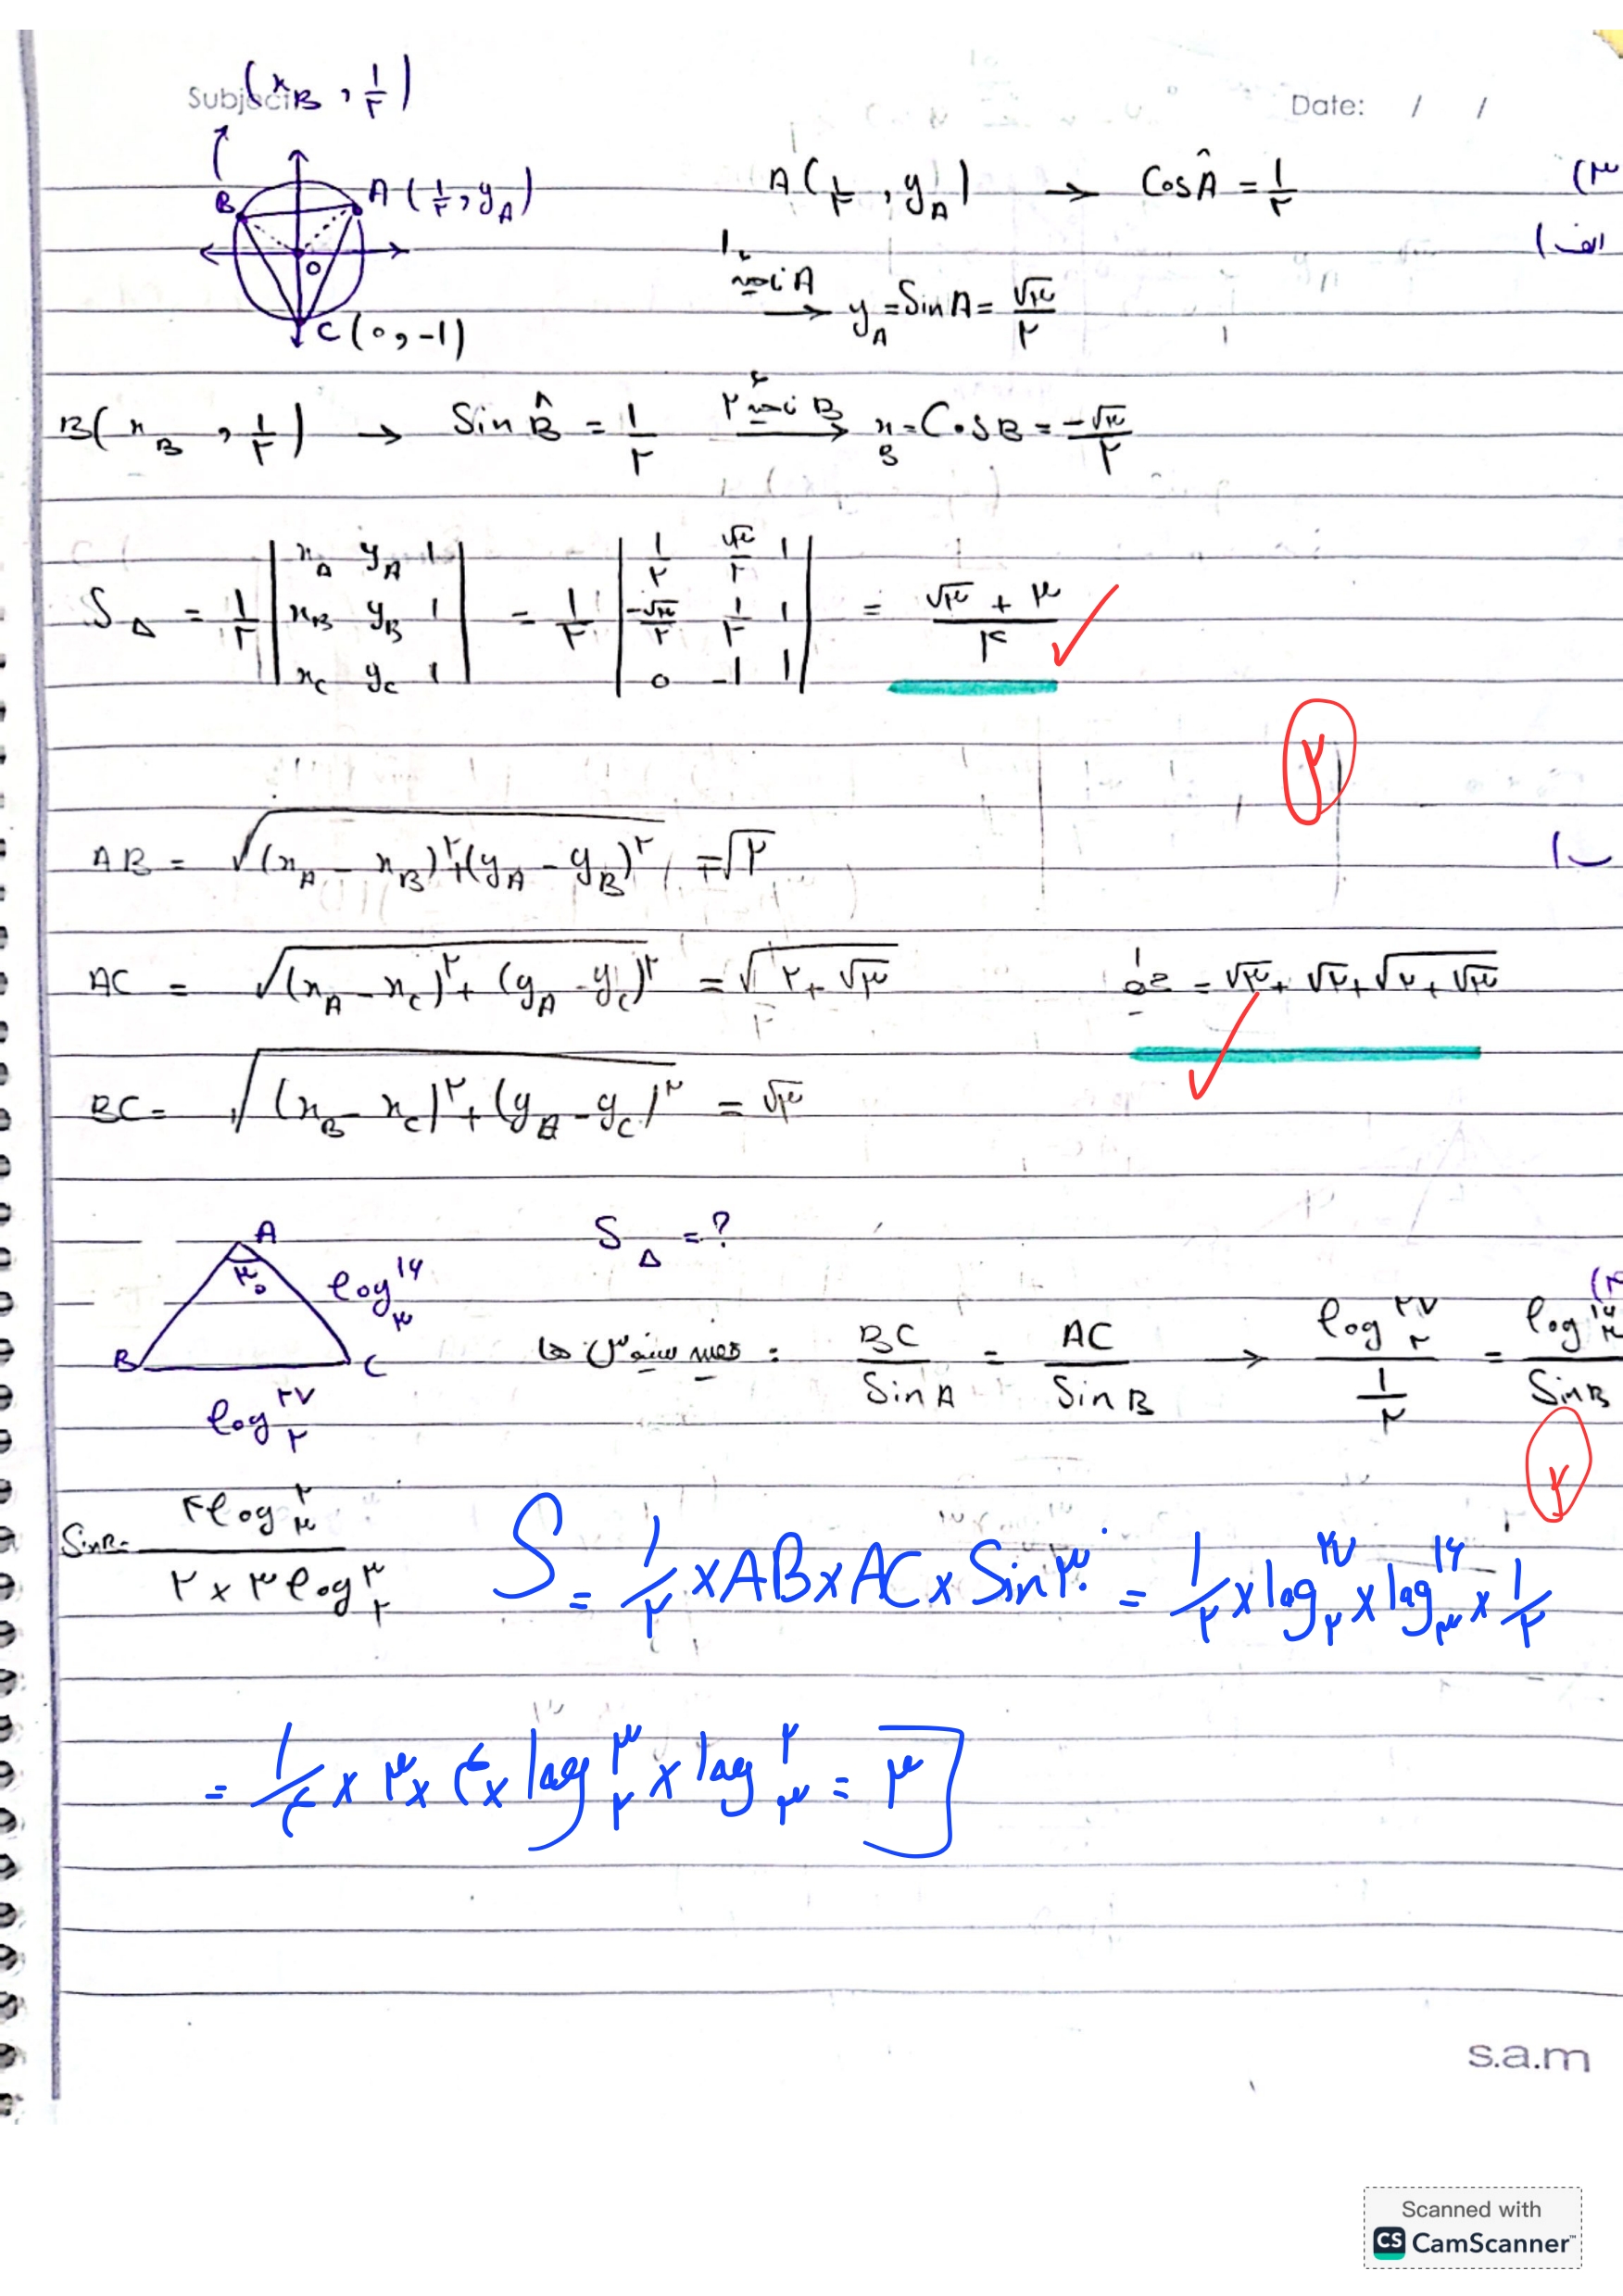 Subject:
(x_B , ۱/۲)
Date: / /
B
A (۱/۲ , y_A)
O
C (0, -1)
A(۱/۲ , y_A) → Cos Â = ۱/۲
(۳
الف)
ناحیه ۱ A → y_A = Sin A = √۳/۲
B(x_B , ۱/۲) → Sin B̂ = ۱/۲ ناحیه ۲ B → x_B = Cos B = -√۳/۲
S_Δ = ۱/۲ | x_A y_A 1 | x_B y_B 1 | x_C y_C 1 | = ۱/۲ | ۱/۲ √۳/۲ 1 | -√۳/۲ ۱/۲ 1 | 0 -1 1 | = (√۳ + ۳)/۴
۲
AB = √((x_A - x_B)^۲ + (y_A - y_B)^۲) = √۲
ب)
AC = √((x_A - x_C)^۲ + (y_A - y_C)^۲) = √(۲ + √۳)
= √۳ + √۲ + √(۲ + √۳)
BC = √((x_B - x_C)^۲ + (y_B - y_C)^۲) = √۳
A
۳۰
log_۳ ۱۶
B
C
log_۲ ۲۷
S_Δ = ?
(۴
قضیه سینوس ها : BC/Sin A = AC/Sin B → log_۲ ۲۷/(۱/۲) = log_۳ ۱۶/Sin B
۲
Sin B = ۴ log_۳ ۲/(۲ × ۳ log_۲ ۳)
S = ۱/۲ × AB × AC × Sin ۳۰ = ۱/۲ × log_۲ ۲۷ × log_۳ ۱۶ × ۱/۲
= ۱/۴ × ۳ × ۴ × log_۲ ۳ × log_۳ ۲ = ۳
s.a.m
Scanned with
CS CamScanner™